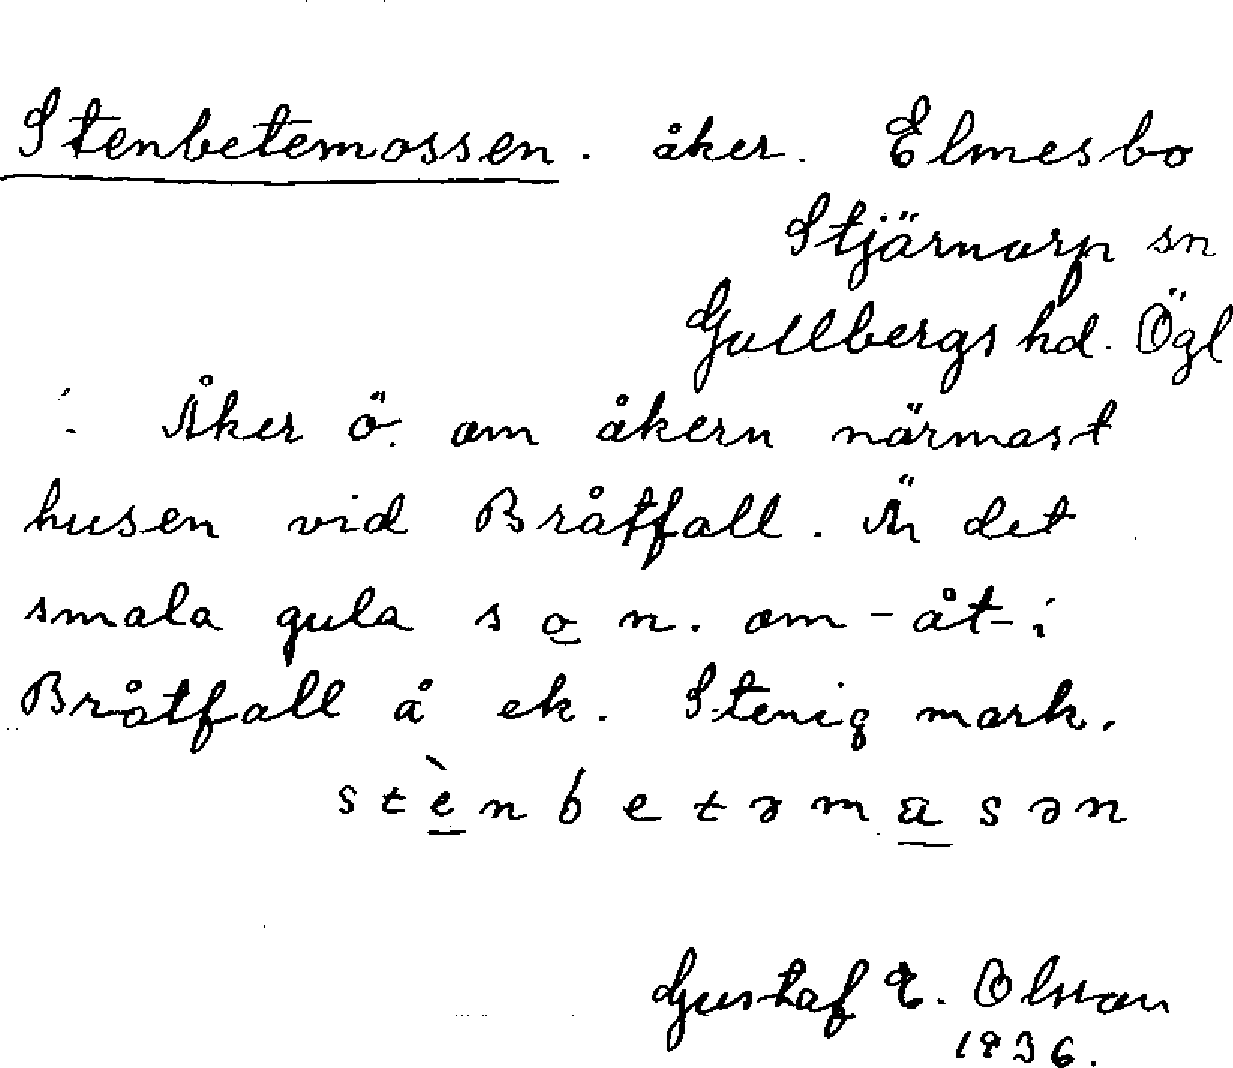 Stenbetemossen. åker. Elmesbo
Stjärnorp sn
Gullbergs hd. Ögl
: Åker ö. om åkern närmast
husen vid Bråtfall. Är det
smala gula s o n. om - åt - i
Bråtfall å ek. Stenig mark.
stènbetəmasən
Gustaf E. Olsson
1936.